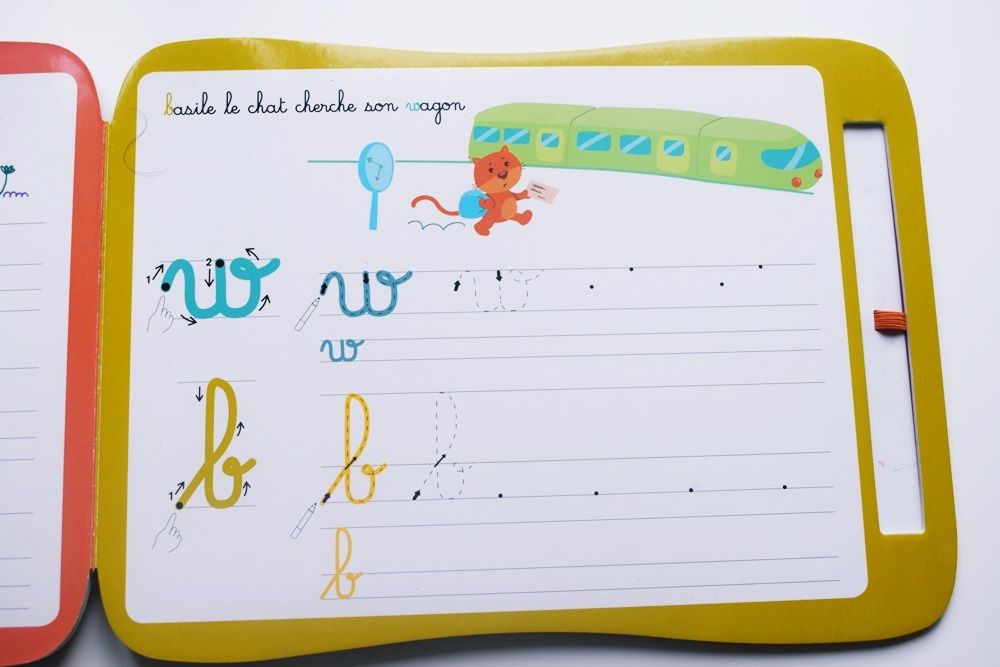 basile le chat cherche son wagon
1 2 w w w
w
1 b b b
b